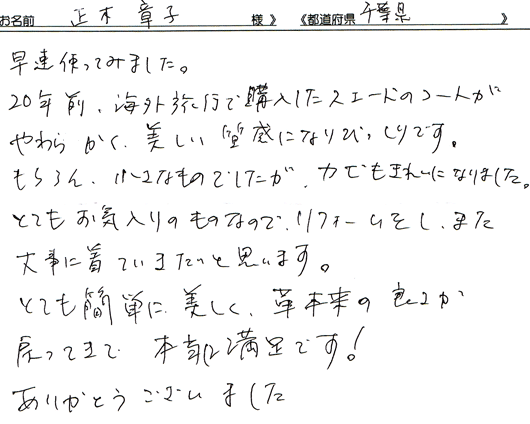 お名前 正木章子 様》 《都道府県 千葉県 》
早速使ってみました。
20年前、海外旅行で購入したスエードのコートが
やわらかく、美しい質感になりびっくりです。
もちろん、小さなものでしたが、カビもきれいになりました。
とてもお気入りのものなので、リフォームをし、また
大事に着ていきたいと思います。
とても簡単に、美しく、革本来の良さが
戻ってきて 本当に満足です!
ありがとうございました